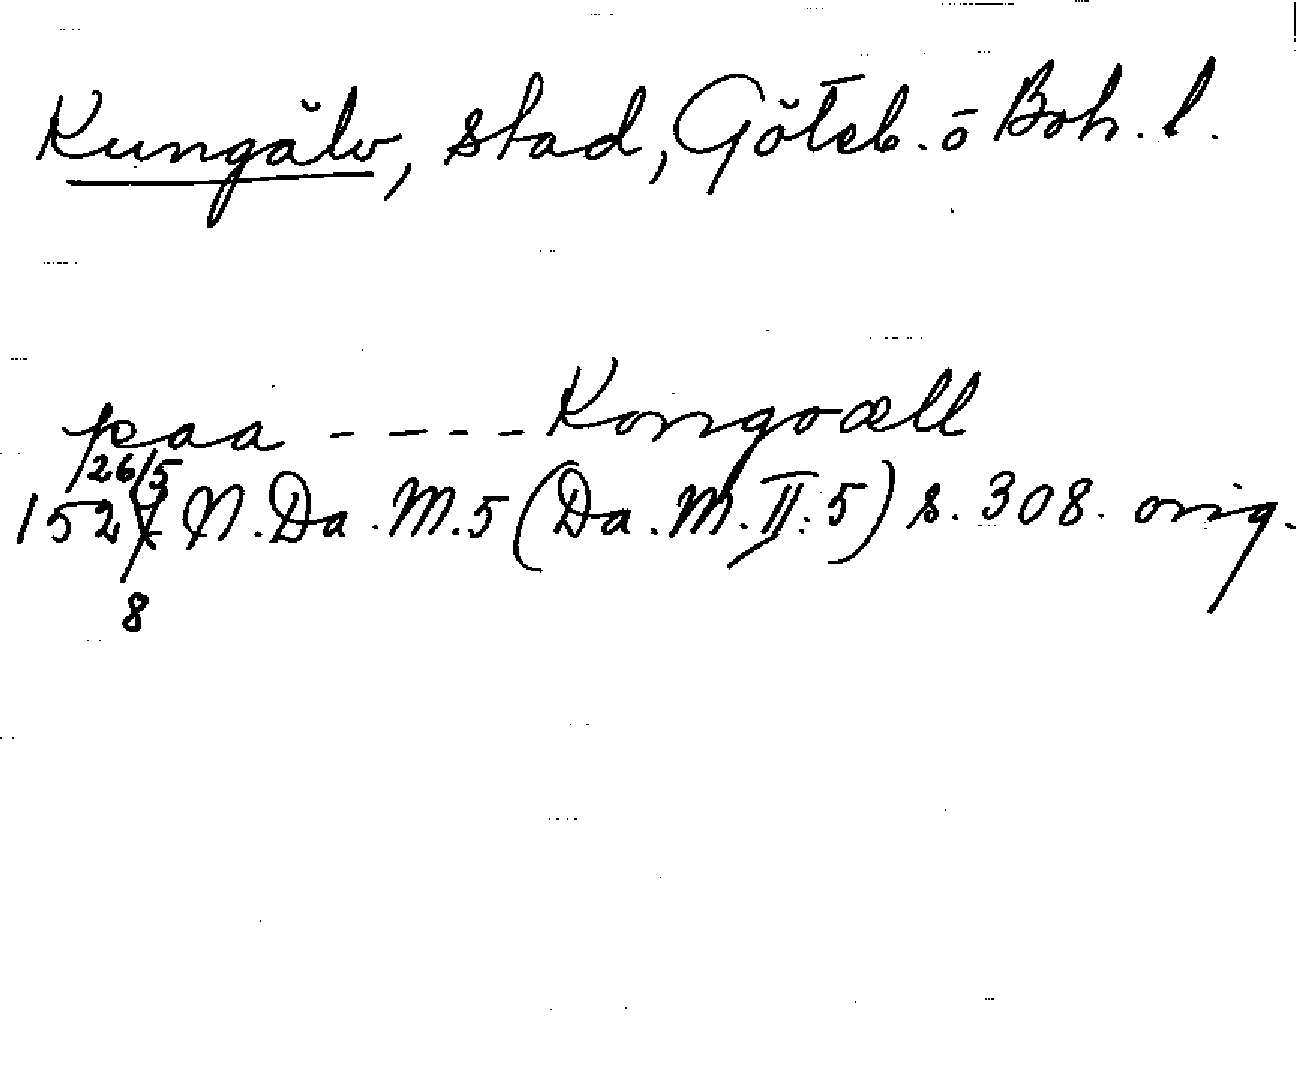 Kungälv, stad, Göteb. o Boh. l.
paa - - - - Kongoæll
26/5
152 N. Da. M. 5 (Da. M. II: 5) s. 308. orig.
8